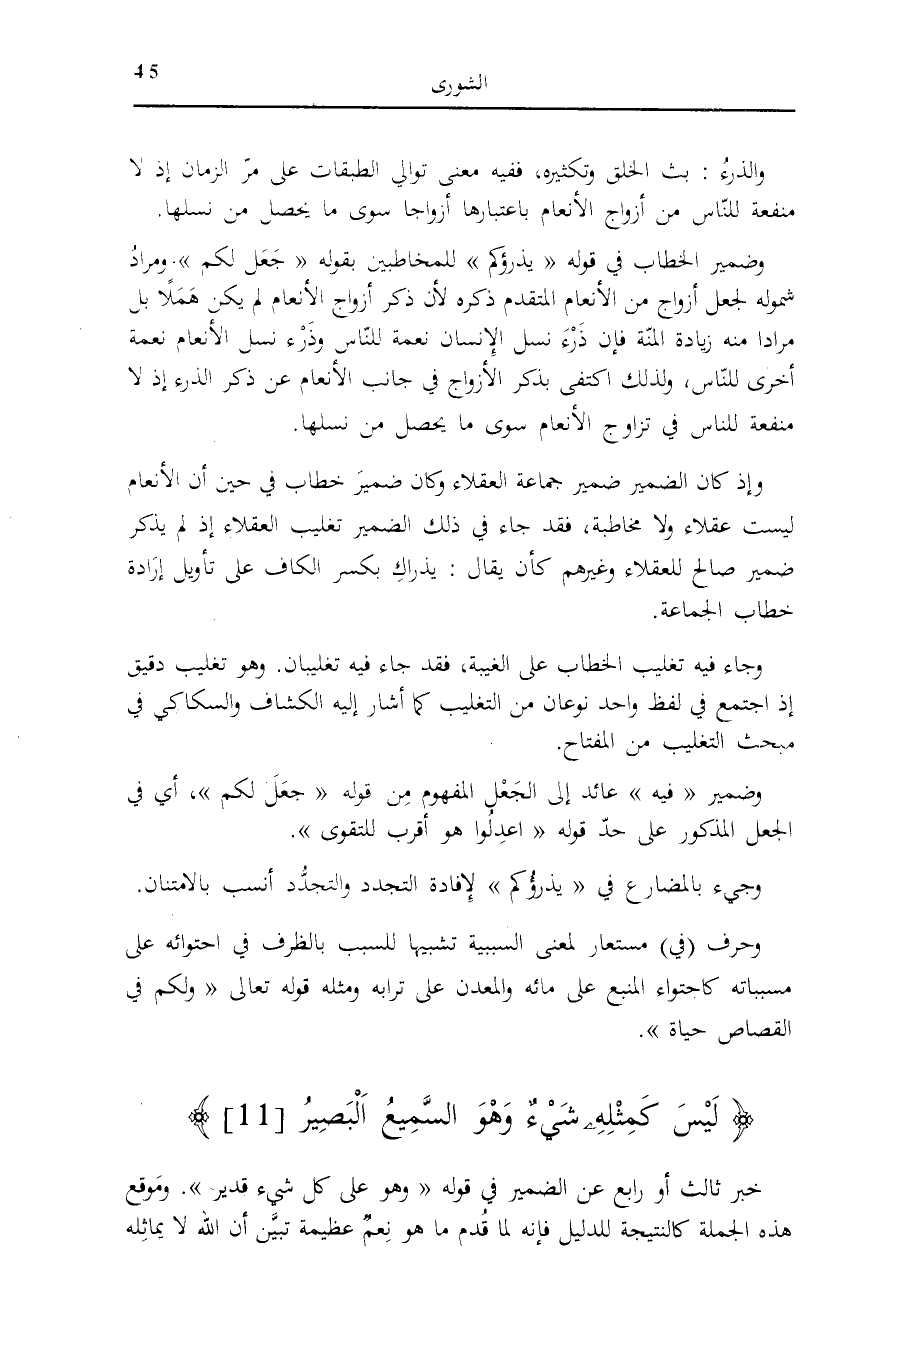 45
الشورى
والذرءُ : بث الخلق وتكثيره، ففيه معنى توالي الطبقات على مرّ الزمان إذ لا
منفعة للنّاس من أزواج الأنعام باعتبارها أزواجا سوى ما يحصل من نسلها.
وضمير الخطاب في قوله « يذرؤكم » للمخاطبين بقوله « جَعَل لكم ». ومرادُ
شموله لجعل أزواج من الأنعام المتقدم ذكره لأن ذكر أزواج الأنعام لم يكن هَمَلًا بل
مرادا منه زيادة المنّة فإن ذَرْءَ نسل الإنسان نعمة للنّاس وذَرْء نسل الأنعام نعمة
أخرى للنّاس، ولذلك اكتفى بذكر الأزواج في جانب الأنعام عن ذكر الذرء إذ لا
منفعة للناس في تزاوج الأنعام سوى ما يحصل من نسلها.
وإذ كان الضمير ضمير جماعة العقلاء وكان ضميرَ خطاب في حين أن الأنعام
ليست عقلاء ولا مخاطبة، فقد جاء في ذلك الضمير تغليب العقلاء إذ لم يذكر
ضمير صالح للعقلاء وغيرهم كأن يقال : يذراكِ بكسر الكاف على تأويل إرَادة
خطاب الجماعة.
وجاء فيه تغليب الخطاب على الغيبة، فقد جاء فيه تغليبان. وهو تغليب دقيق
إذ اجتمع في لفظ واحد نوعان من التغليب كما أشار إليه الكشاف والسكاكي في
مبحث التغليب من المفتاح.
وضمير « فيه » عائد إلى الجَعْلِ المفهوم مِن قوله « جعَلَ لكم »، أي في
الجعل المذكور على حدّ قوله « اعدِلُوا هو أقرب للتقوى ».
وجيء بالمضارع في « يذرؤُكم » لإفادة التجدد والتجدُّد أنسب بالامتنان.
وحرف (في) مستعار لمعنى السببية تشبيها للسبب بالظرف في احتوائه على
مسبباته كاحتواء المنبع على مائه والمعدن على ترابه ومثله قوله تعالى « ولكم في
القصاص حياة ».
﴿ لَيْسَ كَمِثْلِهِۦ شَيْءٌ وَهْوَ السَّمِيعُ اَلْبَصِيرُ [11] ﴾
خبر ثالث أو رابع عن الضمير في قوله « وهو على كل شيء قدير ». ومَوقع
هذه الجملة كالنتيجة للدليل فإنه لما قُدم ما هو نِعمٌ عظيمة تبيَّن أن الله لا يماثِله